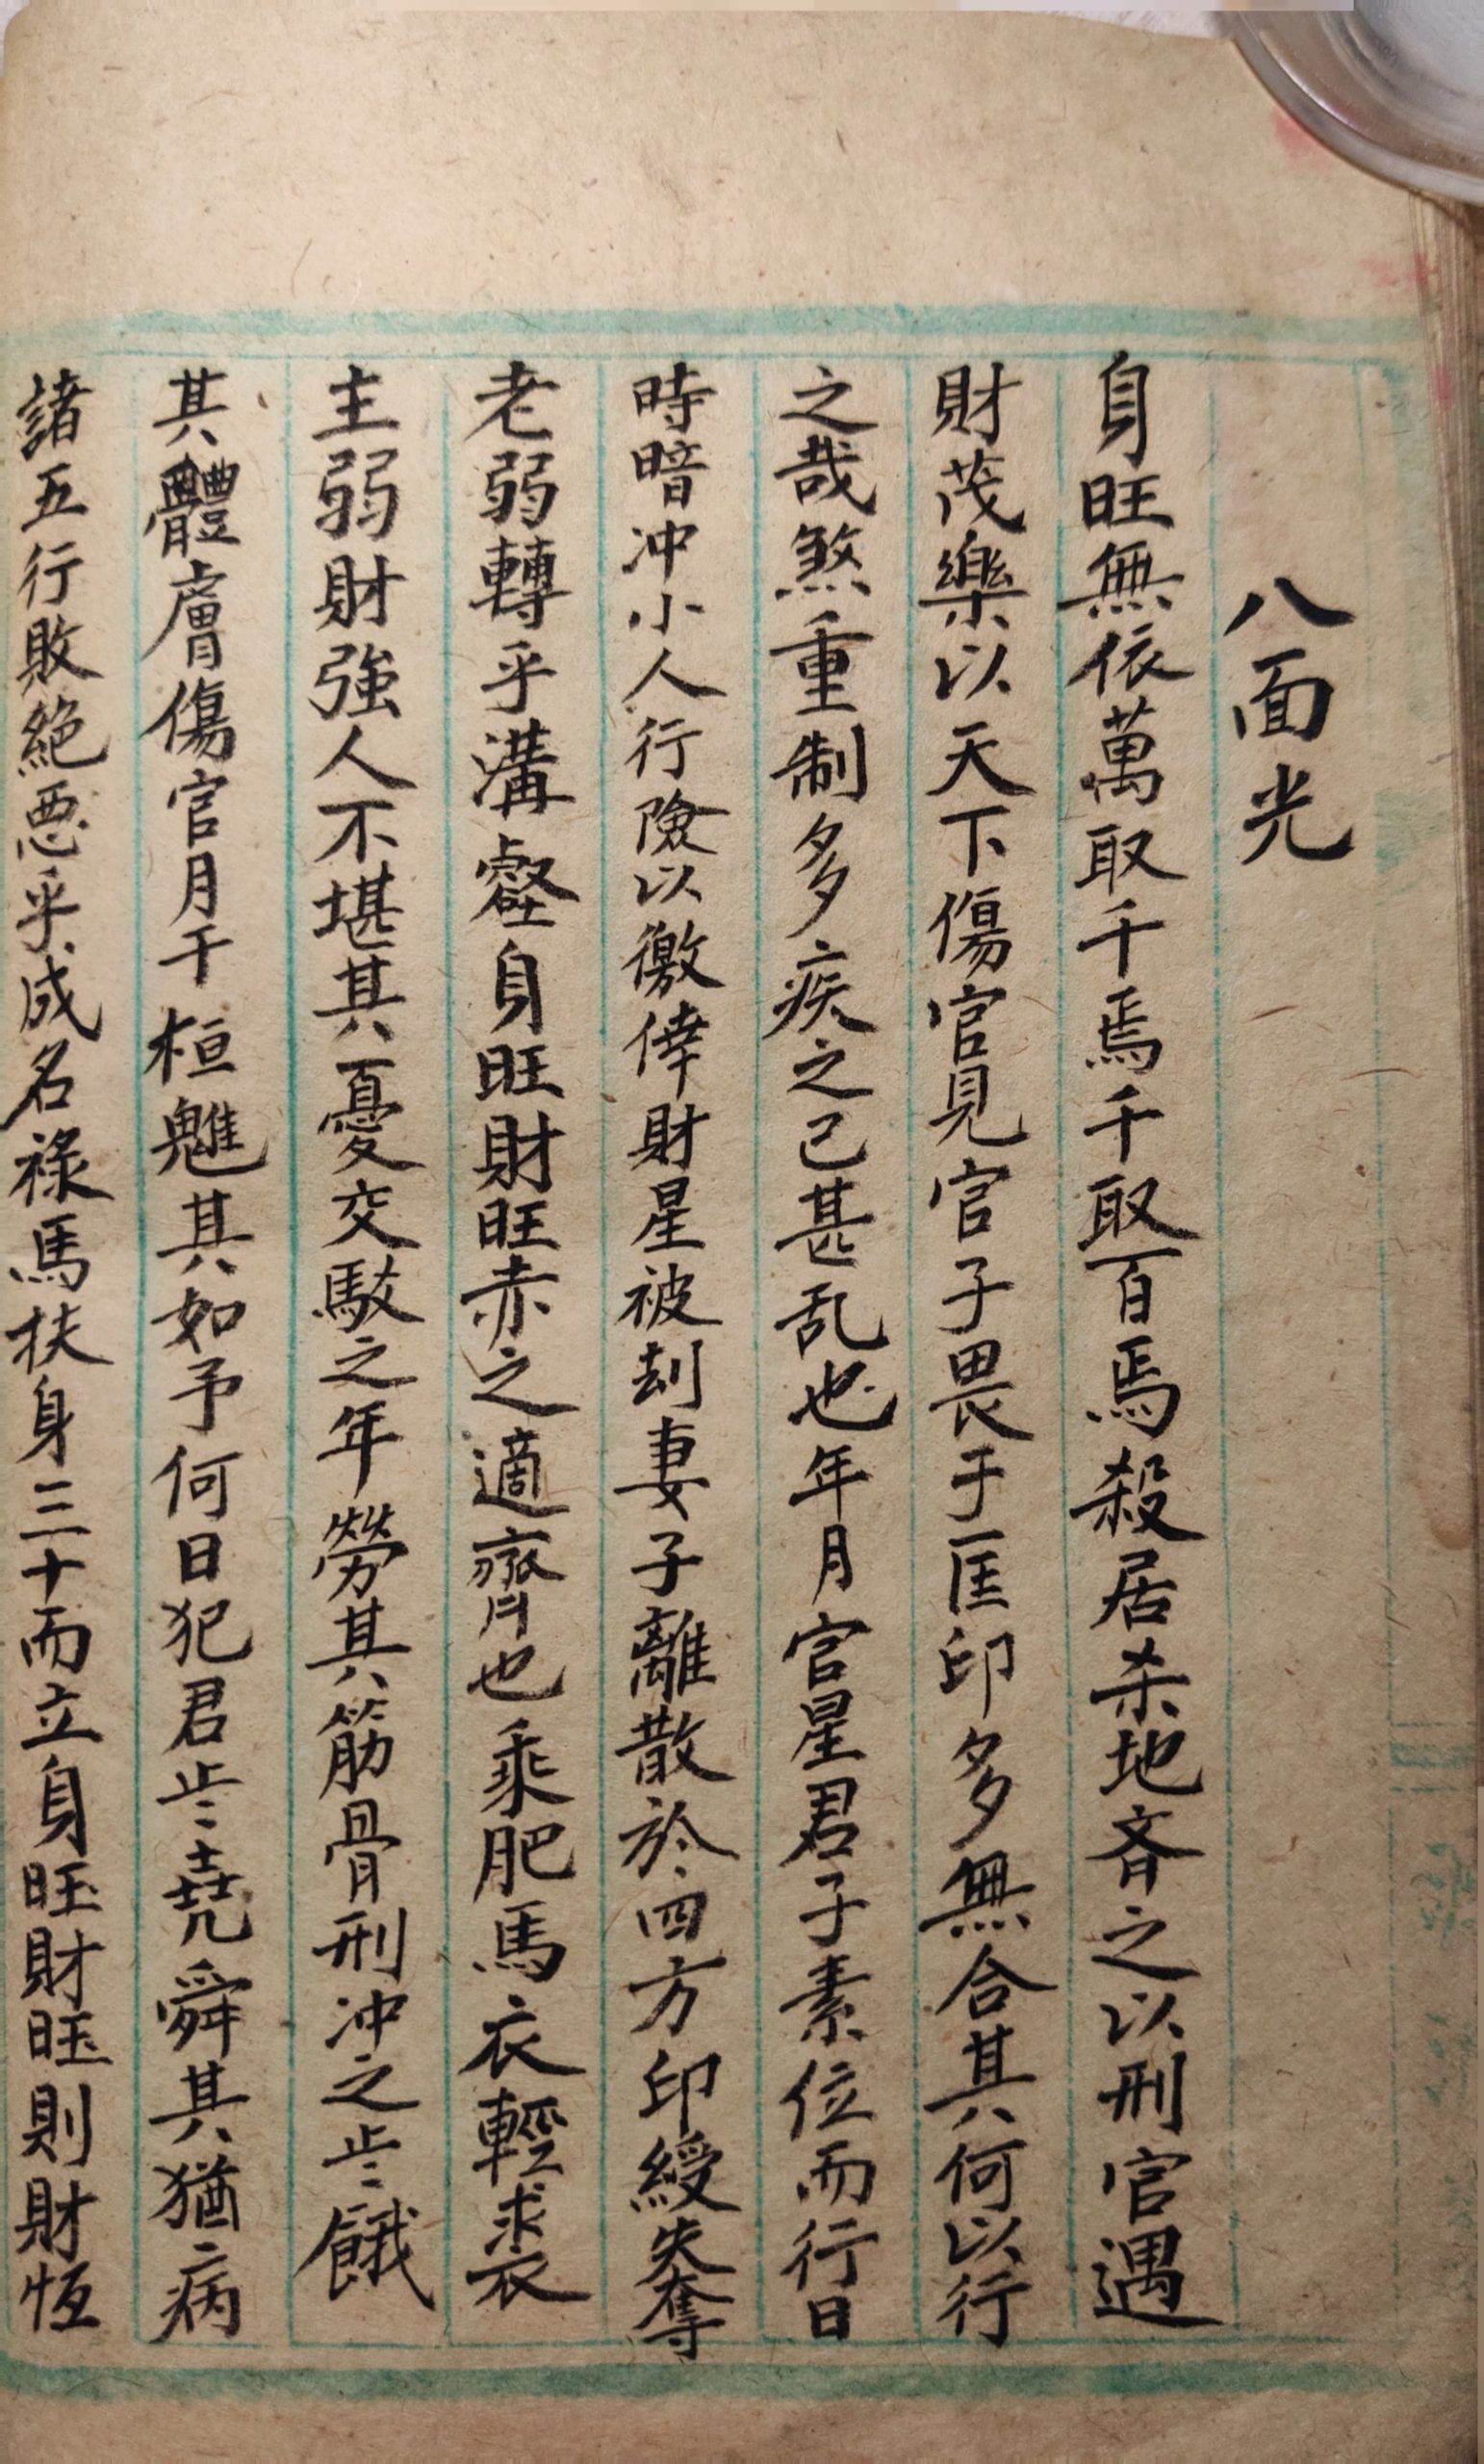 八面光
身旺無依萬取千焉千取百焉殺居杀地斉之以刑官遇
財茂樂以天下傷官見官子畏于匡印多無合其何以行
之哉煞重制多疾之已甚乱也年月官星君子素位而行日
時暗冲小人行險以徼倖財星被刦妻子離散於四方印綬失奪
老弱轉乎溝壑身旺財旺赤之適齊也乘肥馬衣輕裘
主弱財強人不堪其憂交馭之年勞其筋骨刑冲之歲餓
其體膚傷官月干桓魋其如予何日犯君歲堯舜其猶病
諸五行敗絶惡乎成名祿馬扶身三十而立身旺財旺則財恆